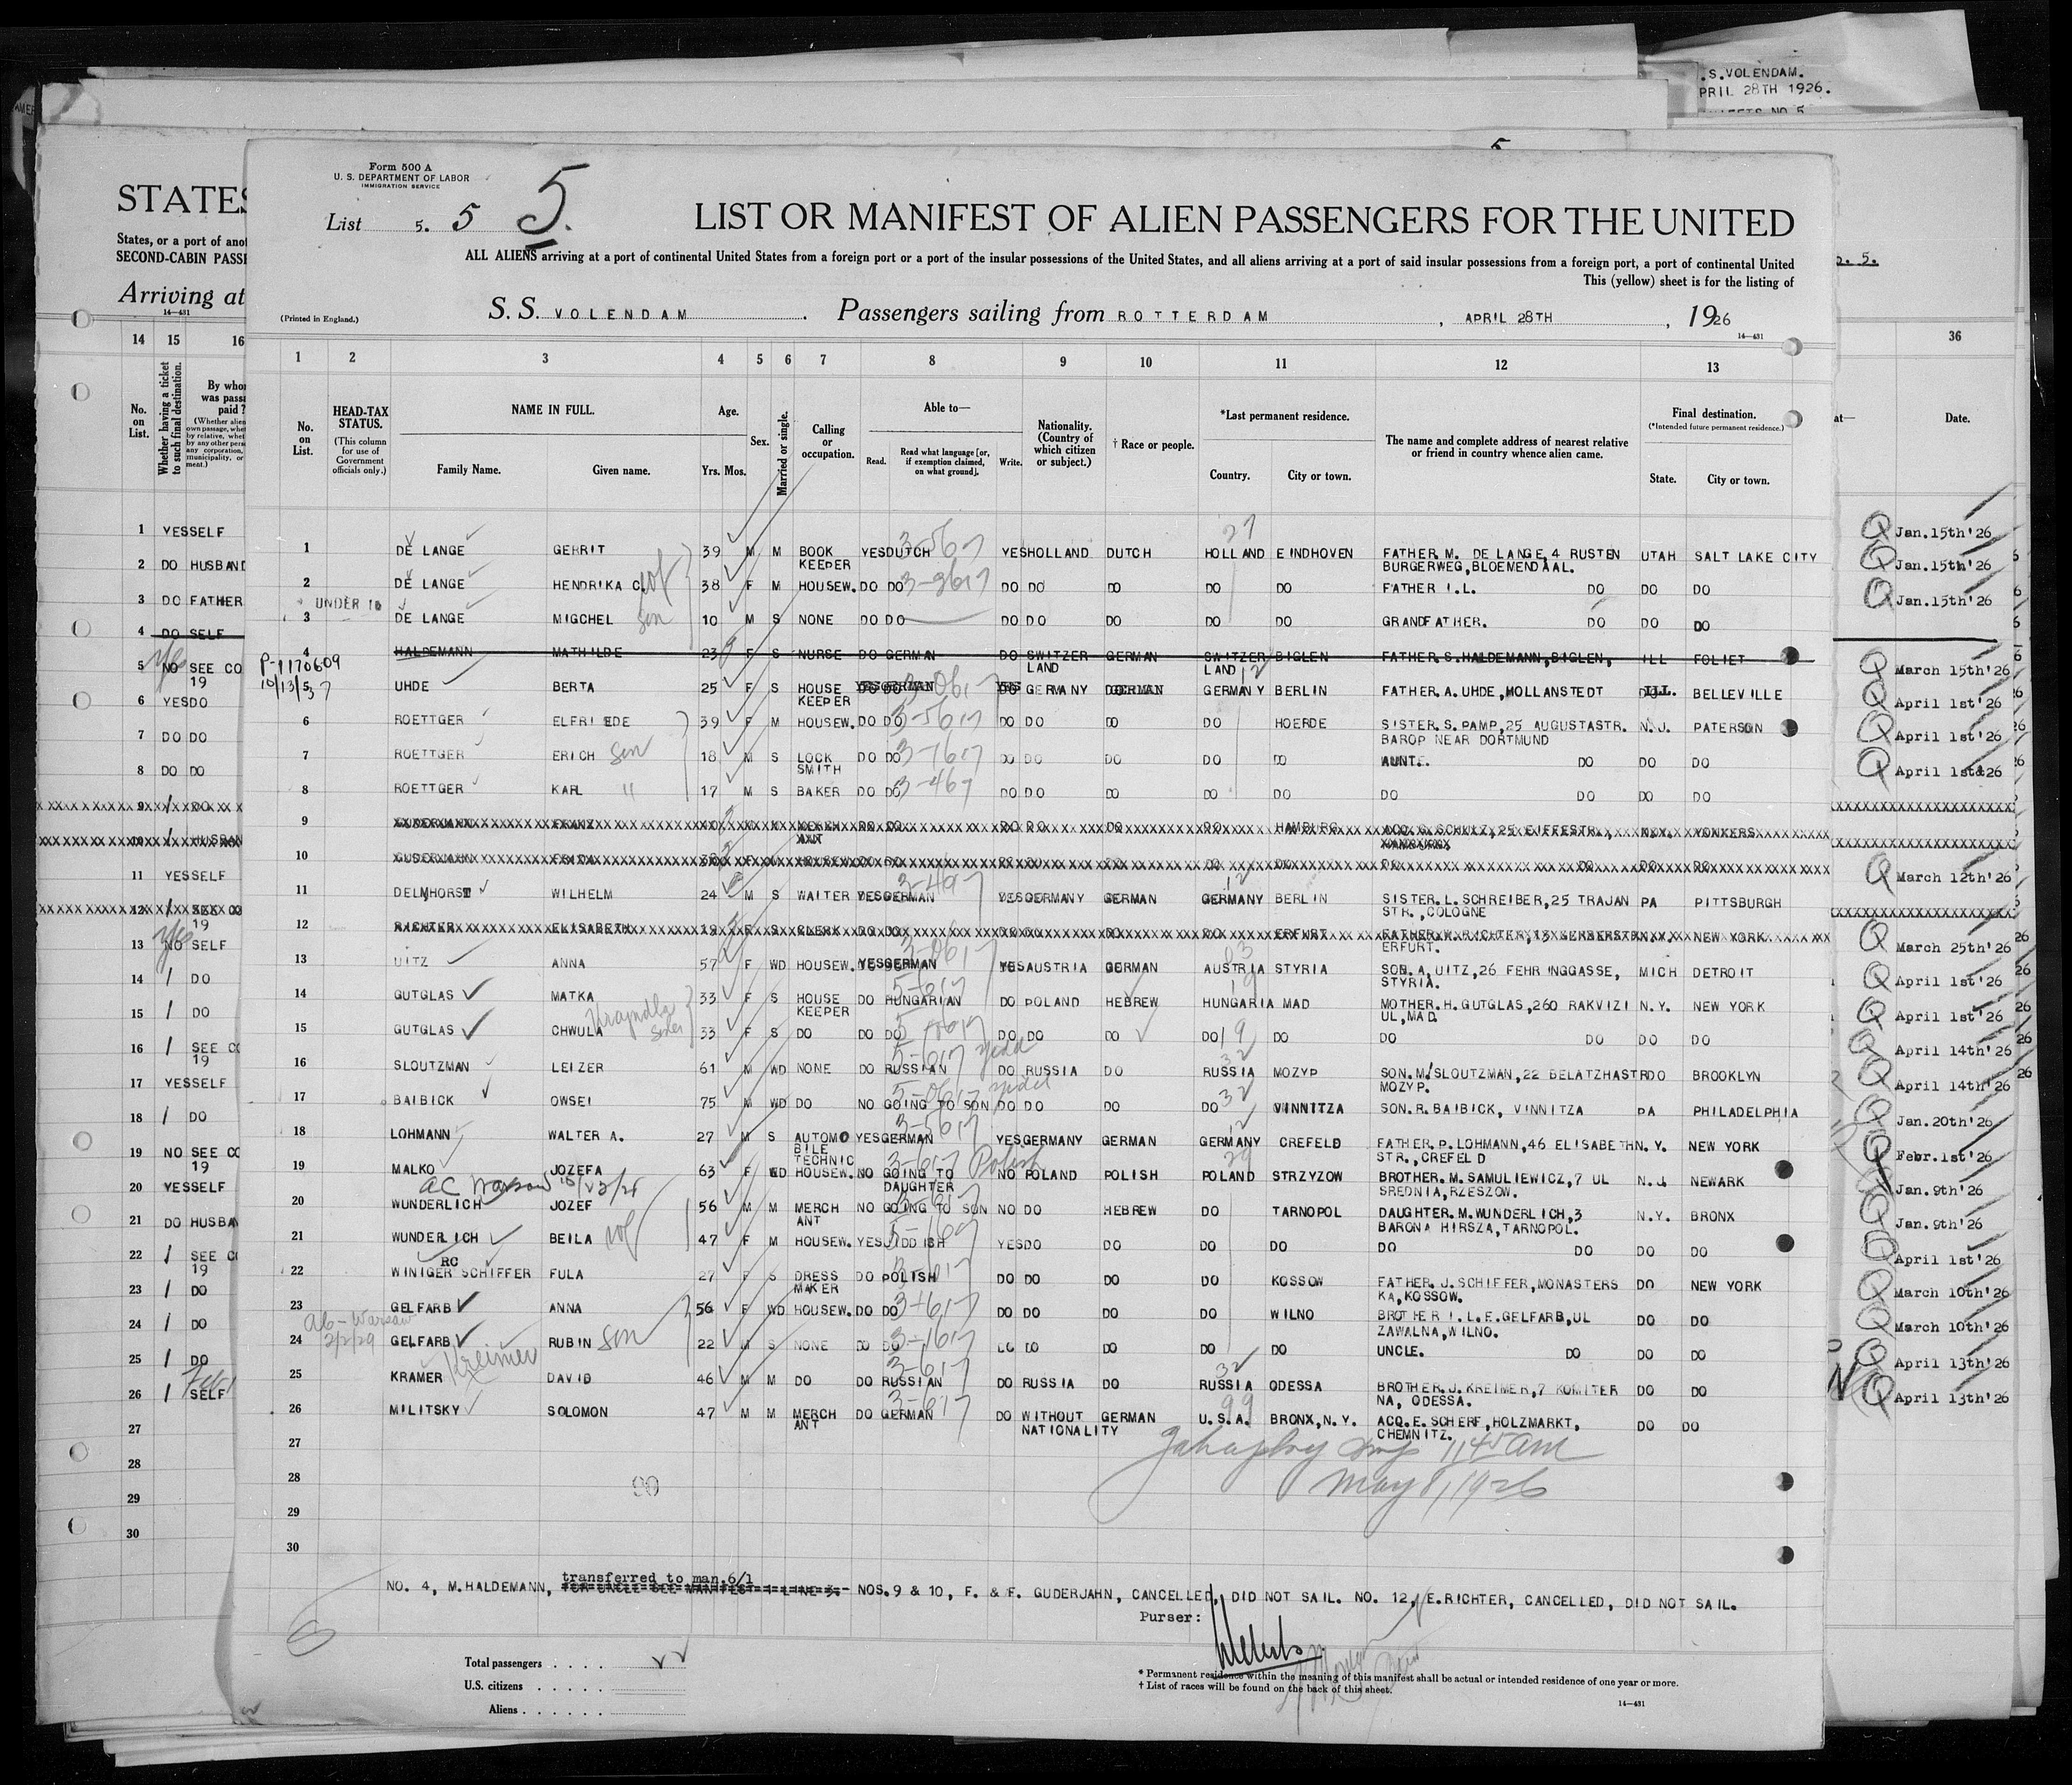 S.S.VOLENDAM.
APRIL 28TH 1926.
Form 500 A
U. S. DEPARTMENT OF LABOR
IMMIGRATION SERVICE
List 5. 5 5.
LIST OR MANIFEST OF ALIEN PASSENGERS FOR THE UNITED
STATES
ALL ALIENS arriving at a port of continental United States from a foreign port or a port of the insular possessions of the United States, and all aliens arriving at a port of said insular possessions from a foreign port, a port of continental United
States, or a port of
SECOND-CABIN
This (yellow) sheet is for the listing of
Arriving at
(Printed in England.)
S. S. VOLENDAM. Passengers sailing from ROTTERDAM, APRIL 28TH, 1926
14—431
1 2 3 4 5 6 7 8 9 10 11 12 13
No. on List.
HEAD-TAX STATUS.
(This column for use of Government officials only.)
NAME IN FULL.
Family Name. Given name.
Age.
Yrs. Mos.
Sex.
Married or single.
Calling or occupation.
Able to—
Read. Read what language [or, if exemption claimed, on what ground]. Write.
Nationality. (Country of which citizen or subject.)
† Race or people.
*Last permanent residence.
Country. City or town.
The name and complete address of nearest relative or friend in country whence alien came.
Final destination.
(*Intended future permanent residence.)
State. City or town.
1 DE LANGE GERRIT 39 M M BOOK KEEPER YES DUTCH YES HOLLAND DUTCH HOLLAND EINDHOVEN FATHER. M. DE LANGE, 4 RUSTEN BURGERWEG, BLOEMENDAAL. UTAH SALT LAKE CITY
2 DE LANGE HENDRIKA C. 38 F M HOUSEW. DO DO DO DO DO DO DO FATHER I.L. DO DO DO
UNDER 16
3 DE LANGE MIGCHEL son 10 M S NONE DO DO DO DO DO DO DO GRANDFATHER. DO DO DO
4 HALDEMANN MATHILDE 23 F S NURSE DO GERMAN DO SWITZERLAND GERMAN SWITZERLAND BIGLEN FATHER. S. HALDEMANN, BIGLEN, ILL FOLIET
P-1170609
5 UHDE BERTA 25 F S HOUSE KEEPER YES GERMAN YES GERMANY GERMAN GERMANY BERLIN FATHER. A. UHDE, MOLLANSTEDT ILL. BELLEVILLE
6 ROETTGER ELFRIEDE 39 F M HOUSEW. DO DO DO DO DO DO HOERDE SISTER. S. PAMP, 25 AUGUSTASTR. BAROP NEAR DORTMUND N.J. PATERSON
7 ROETTGER ERICH son 18 M S LOCK SMITH DO DO DO DO DO DO DO AUNT. DO DO DO
8 ROETTGER KARL " 17 M S BAKER DO DO DO DO DO DO DO DO DO DO DO
9 GUDERJAHN FRANZ DO DO HAMBURG N.Y. YONKERS
10 GUDERJAHN
11 DELMHORST WILHELM 24 M S WAITER YES GERMAN YES GERMANY GERMAN GERMANY BERLIN SISTER. L. SCHREIBER, 25 TRAJAN STR., COLOGNE PA PITTSBURGH
12 RICHTER ELISABETH 19 F S CLERK DO DO DO DO DO DO ERFURT FATHER. W. RICHTER, ERFURT. N.Y. NEW YORK
13 UITZ ANNA 57 F WD HOUSEW. YES GERMAN YES AUSTRIA GERMAN AUSTRIA STYRIA SON. A, UITZ, 26 FEHRINGGASSE, STYRIA. MICH DETROIT
14 GUTGLAS MATKA 33 F S HOUSE KEEPER DO HUNGARIAN DO POLAND HEBREW HUNGARIA MAD MOTHER. H. GUTGLAS, 260 RAKVIZI UL, MAD. N.Y. NEW YORK
15 GUTGLAS CHWULA 33 F S DO DO DO DO DO DO DO DO DO DO DO DO
16 SLOUTZMAN LEIZER 61 M WD NONE DO RUSSIAN DO RUSSIA DO RUSSIA MOZYP SON. M. SLOUTZMAN, 22 BELATZHASTR MOZYP. DO BROOKLYN
17 BAIBICK OWSEI 75 M WD DO NO GOING TO SON DO DO DO DO VINNITZA SON. R. BAIBICK, VINNITZA PA PHILADELPHIA
18 LOHMANN WALTER A. 27 M S AUTOMOBILE TECHNIC YES GERMAN YES GERMANY GERMAN GERMANY CREFELD FATHER. P. LOHMANN, 46 ELISABETH STR., CREFELD N.Y. NEW YORK
19 MALKO JOZEFA 63 F WD HOUSEW. NO GOING TO DAUGHTER Polish NO POLAND POLISH POLAND STRZYZOW BROTHER. M. SAMULIEWICZ, 7 UL SREDNIA, RZESZOW. N.J. NEWARK
20 WUNDERLICH JOZEF 56 M M MERCHANT NO GOING TO SON NO DO HEBREW DO TARNOPOL DAUGHTER. M. WUNDERLICH, 3 BARONA HIRSZA, TARNOPOL. N.Y. BRONX
21 WUNDERLICH BEILA 47 F M HOUSEW. YES JIDDISH YES DO DO DO DO DO DO DO DO
22 WINIGER RC SCHIFFER FULA 27 F S DRESS MAKER DO POLISH DO DO DO DO KOSSOW FATHER. J. SCHIFFER, MONASTERSKA, KOSSOW. DO NEW YORK
23 GELFARB ANNA 56 F WD HOUSEW. DO DO DO DO DO DO WILNO BROTHER I.L. E. GELFARB, UL ZAWALNA, WILNO. DO DO
24 GELFARB RUBIN son 22 M S NONE DO DO DO DO DO DO DO UNCLE. DO DO DO
25 KRAMER Kreimer DAVID 46 M M DO DO RUSSIAN DO RUSSIA DO RUSSIA ODESSA BROTHER. J. KREIMER, 7 KOMITERNA, ODESSA. DO DO
26 MILITSKY SOLOMON 47 M M MERCHANT DO GERMAN DO WITHOUT NATIONALITY GERMAN U.S.A. BRONX, N.Y. ACQ. E. SCHERF, HOLZMARKT, CHEMNITZ. DO DO
27
28
29
30
1145 am
May 8, 1926
90
NO. 4, M. HALDEMANN, transferred to man. 6/1 NOS. 9 & 10, F. & F. GUDERJAHN, CANCELLED, DID NOT SAIL. NO. 12, E. RICHTER, CANCELLED, DID NOT SAIL.
Purser:
Total passengers
U.S. citizens
Aliens
* Permanent residence within the meaning of this manifest shall be actual or intended residence of one year or more.
† List of races will be found on the back of this sheet.
14—431
14 15 16
No. on List.
Whether having a ticket to such final destination.
1 YES SELF
2 DO HUSBAND
3 DO FATHER
4 DO SELF
5 NO SEE CO 19
6 YES DO
7 DO DO
8 DO DO
11 YES SELF
13 NO SELF
14 DO
15 DO
16 SEE CO 19
17 YES SELF
18 DO
19 NO SEE CO 19
20 YES SELF
21 DO HUSBA
22 SEE CO 19
23 DO
24 DO
25 DO
26 SELF
27
28
29
30
36
Date.
Jan. 15th '26
Jan. 15th '26
Jan. 15th '26
March 15th '26
April 1st '26
April 1st '26
April 1st '26
March 12th '26
March 25th '26
April 1st '26
April 1st '26
April 14th '26
April 14th '26
Jan. 20th '26
Febr. 1st '26
Jan. 9th '26
Jan. 9th '26
April 1st '26
March 10th '26
March 10th '26
April 13th '26
April 13th '26